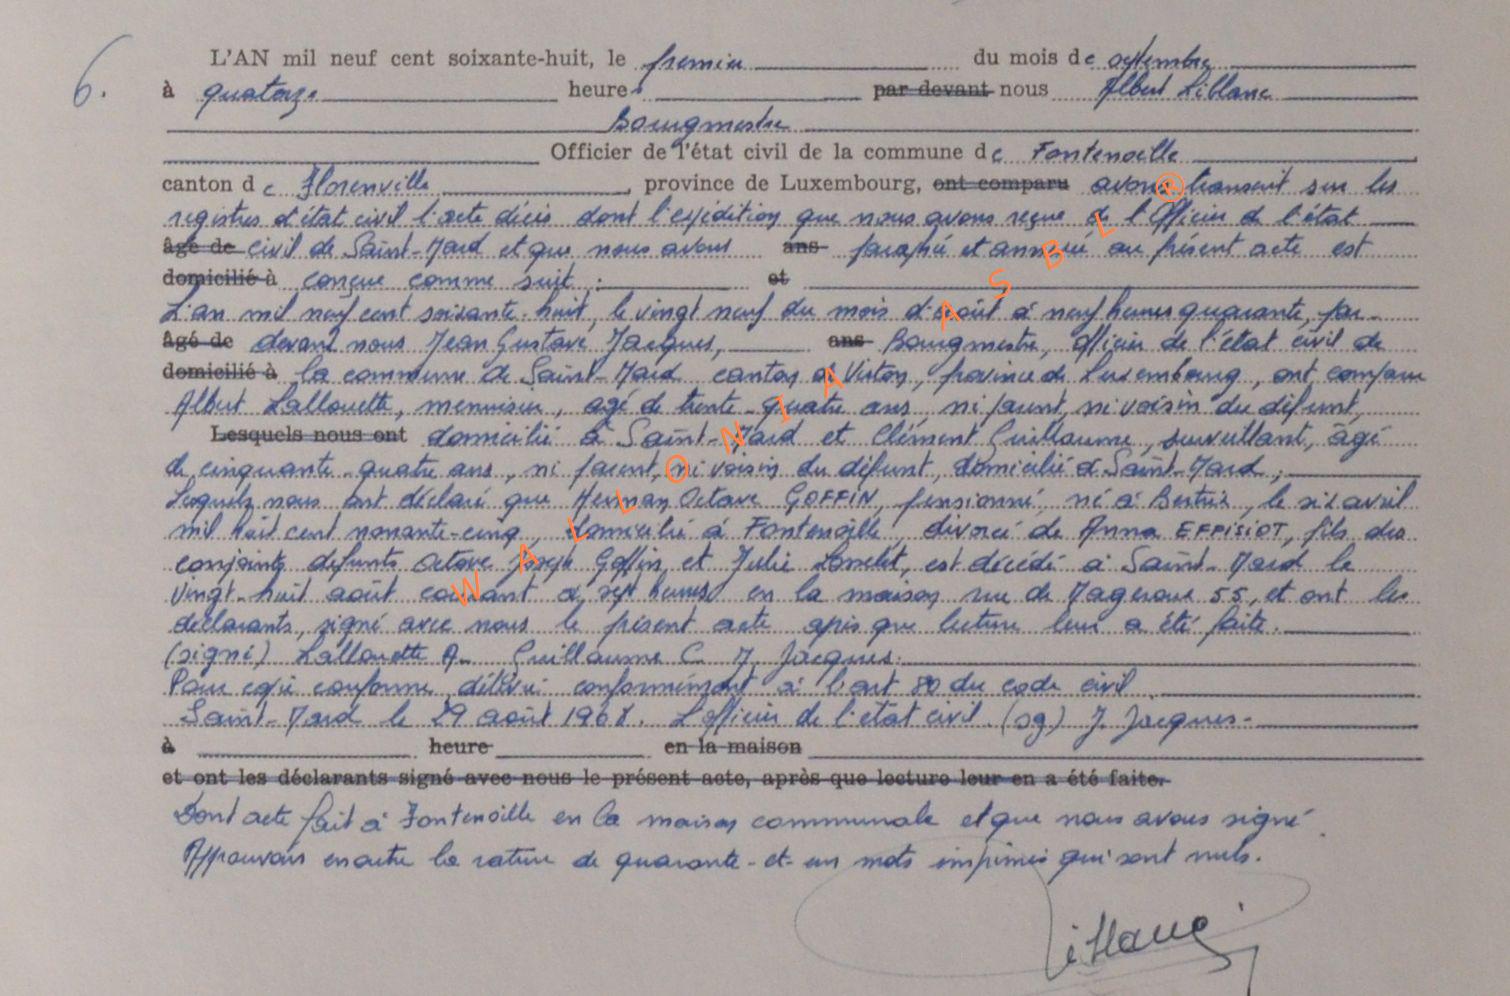 6.
L'AN mil neuf cent soixante-huit, le premier du mois de septembre
à quatorze heures par devant nous Albert Liblanc
Bourgmestre
Officier de l'état civil de la commune de Fontenoille
canton de Florenville, province de Luxembourg, ont comparu avons transcrit sur les
registres d'état civil l'acte décès dont l'expédition que nous avons reçue de l'Officier de l'état
âgé de civil de Saint-Mard et que nous avons ans paraphé et annexé au présent acte est
domicilié à conçue comme suit : et
L'an mil neuf cent soixante-huit, le vingt neuf du mois d'août à neuf heures quarante, par-
âgé de devant nous Jean Gustave Jacques, ans Bourgmestre, officier de l'état civil de
domicilié à la commune de Saint-Mard canton de Virton, province de Luxembourg, ont comparu
Albert Lallouette, menuisier, âgé de trente-quatre ans, ni parent, ni voisin du défunt,
Lesquels nous ont domicilié à Saint-Mard et Clément Guillaume, surveillant, âgé
de cinquante-quatre ans, ni parent, ni voisin du défunt, domicilié à Saint-Mard ;
Lesquels nous ont déclaré que Herman Octave GOFFIN, pensionné, né à Bertrix, le six avril
mil huit cent nonante-cinq, domicilié à Fontenoille, divorcé de Anna EPPISIOT, fils des
conjoints défunts Octave Joseph Goffin et Julie Lamelot, est décédé à Saint-Mard le
vingt-huit août courant à sept heures en la maison rue de Mageroux 55, et ont les
déclarants, signé avec nous le présent acte après que lecture leur a été faite.
(signé) Lallouette A. Guillaume C. J. Jacques.
Pour copie conforme, délivré conformément à l'art 80 du code civil
Saint-Mard le 29 août 1968. L'officier de l'état civil. (sg) J. Jacques-
à heure en la maison
et ont les déclarants signé avec nous le présent acte, après que lecture leur en a été faite.
Dont acte fait à Fontenoille en la maison communale et que nous avons signé.
Approuvons en outre la rature de quarante-et-un mots imprimés qui sont nuls.
Liblanc
WALLONIA ASBL ®